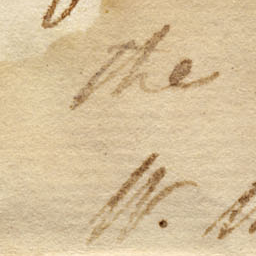 the
W.